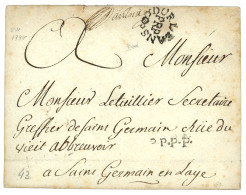 ORLEANS
A Monsieur
Monsieur Letellier Secretaire
Greffier de Saint Germain Rüe du
vieil abbreuvoir
P.P.P.P.
a Saint Germain en Laye